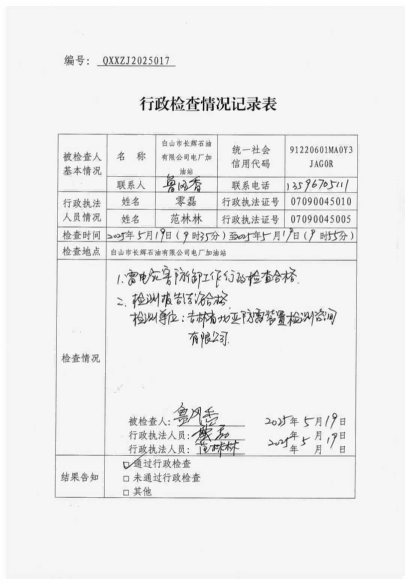 编号: QXXZJ2025017
行政检查情况记录表
被检查人基本情况 名 称 白山市长辉石油有限公司电厂加油站 统一社会信用代码 91220601MA0Y3JAG0R
联系人 鲁凤香 联系电话 13596705111
行政执法人员情况 姓名 零磊 行政执法证号 07090045010
姓名 范林林 行政执法证号 07090045005
检查时间 2025年5月19日(9时35分)至2025年5月19日(9时55分)
检查地点 白山市长辉石油有限公司电厂加油站
检查情况
1.雷电灾害防御工作行政检查合格.
2.检测报告合格
检测单位:吉林省 防雷装置检测咨询
有限公司.
被检查人: 鲁凤香 2025年5月19日
行政执法人员: 零磊 2025年5月19日
行政执法人员: 范林林 2025年5月19日
结果告知 ☑通过行政检查
□未通过行政检查
□其他